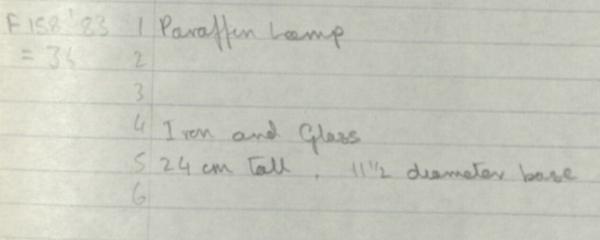 F158'83 1 Paraffin Lamp
= 36 2
3
4 Iron and Glass
5 24 cm tall, 11 1/2 diameter base
6